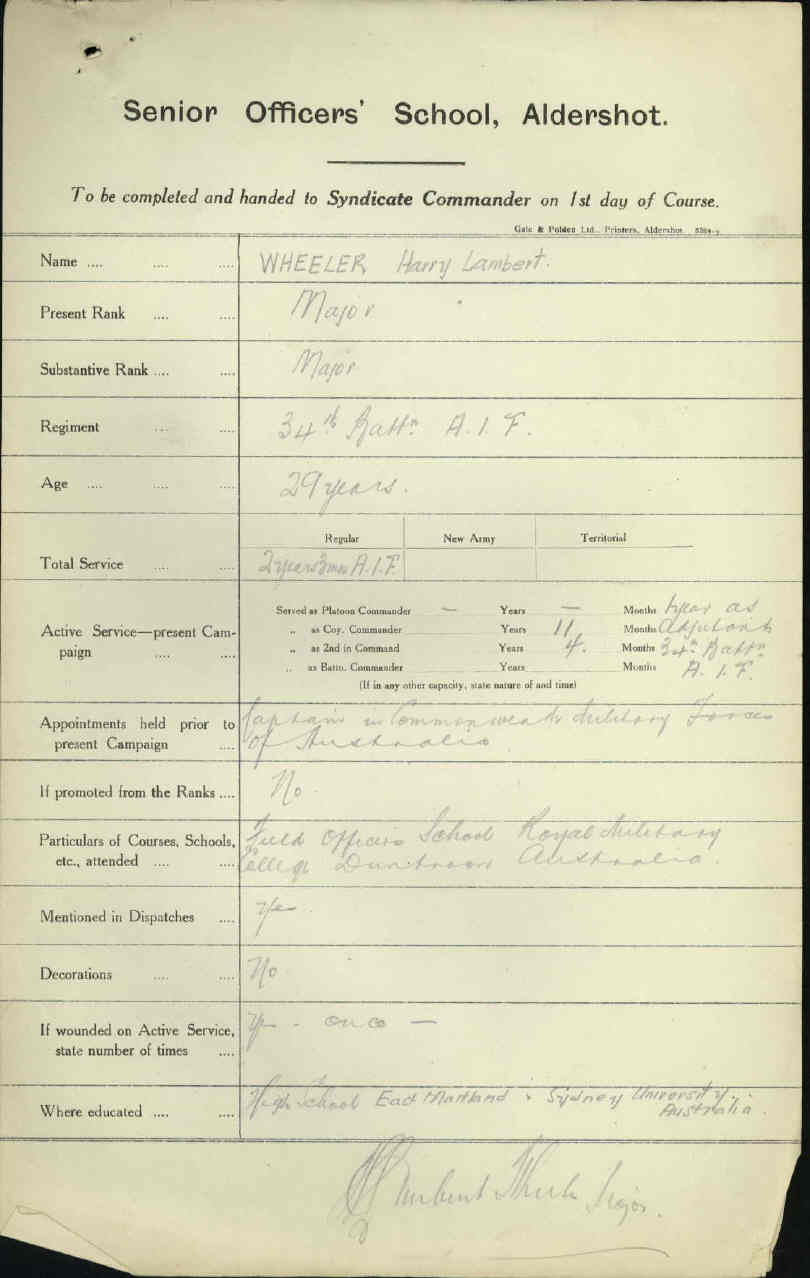 Senior Officers' School, Aldershot.
To be completed and handed to Syndicate Commander on 1st day of Course.
Gale & Polden Ltd., Printers, Aldershot.
Name .... .... .... WHEELER Harry Lambert.
Present Rank .... .... Major
Substantive Rank .... .... Major
Regiment .... .... 34th Battn A.I.F.
Age .... .... .... 29 years.
Regular New Army Territorial
Total Service .... .... 2 years 3 mos A.I.F.
Served as Platoon Commander — Years — Months 1 year as
Active Service—present Cam- „ as Coy. Commander Years 11 Months Adjutant
paign .... .... „ as 2nd in Command Years 4. Months 34th Battn
„ as Battn. Commander Years Months A.I.F.
(If in any other capacity, state nature of and time)
Appointments held prior to Captain in Commonwealth Military Forces
present Campaign .... of Australia
If promoted from the Ranks .... No
Particulars of Courses, Schools, Field Officers School Royal Military
etc., attended .... .... College Duntroon Australia.
Mentioned in Dispatches .... Yes
Decorations .... .... No
If wounded on Active Service, Yes - once —
state number of times ....
Where educated .... .... High School East Maitland & Sydney University,
Australia.
Major.